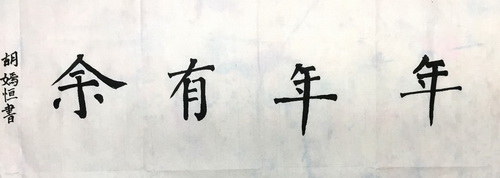 年年有余
胡嫣恒書